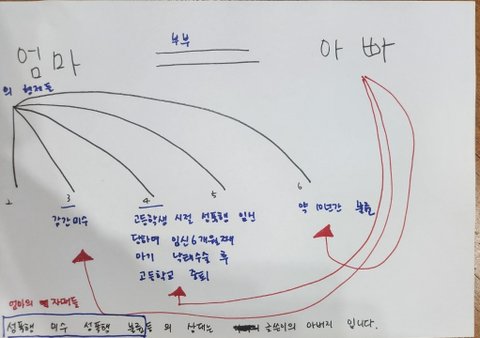 부부
엄마
아빠
의 형제들
2 3 4 5 6
강간미수
고등학생 시절 성폭행 임신
당하며 임신6개월째
아기 낙태수술 후
고등학교 중퇴
약 10년간 불륜
엄마의 자매들
성폭행 미수 성폭행 불륜들의 상대는 글쓴이의 아버지 입니다.